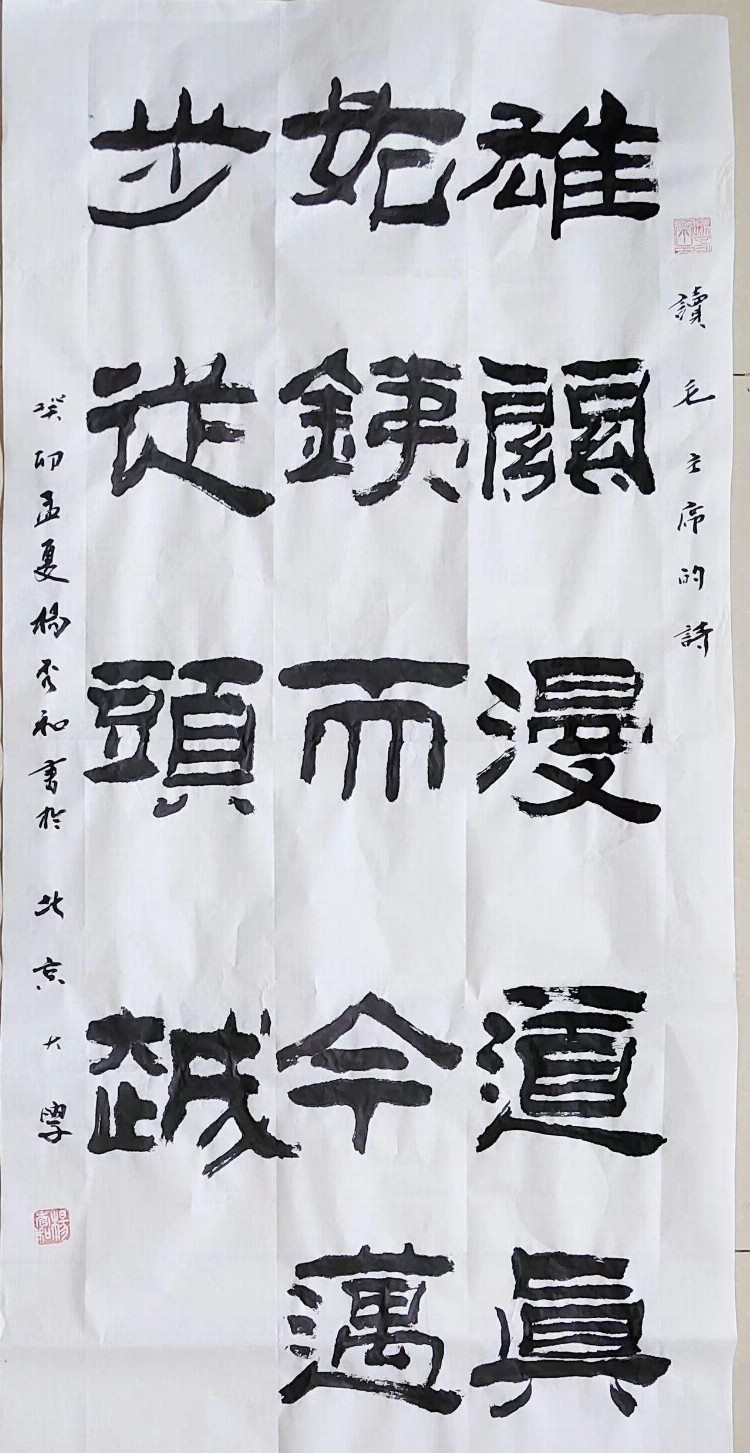 讀毛主席的詩
雄關漫道眞
如銕而今邁
步從頭越
癸卯孟夏楊秀和書於北京大學